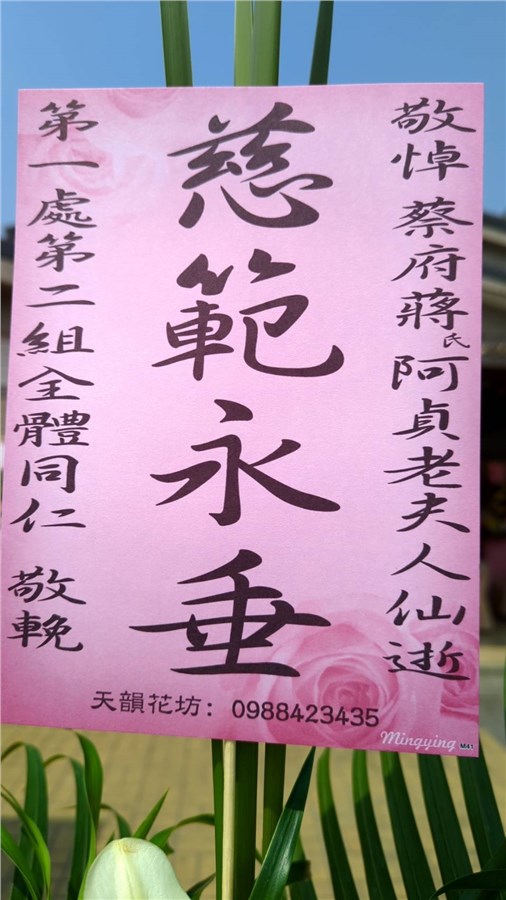 敬悼 蔡府蔣氏阿貞老夫人仙逝
慈範永垂
第一處第二組全體同仁 敬輓
天韻花坊：0988423435
Mingying M41